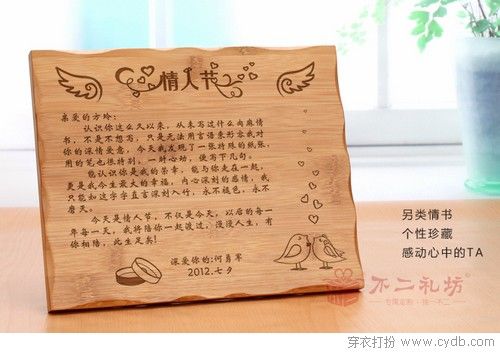 情人节
亲爱的方玲:
认识你这么久以来，从未写过什么肉麻情
书，不是不想写，只是无法用言语来形容我对
你的深情爱意，今天我发现了一张特殊的纸张，
用的笔也很特别，一时心动，便写下几句。
能认识你是我的荣幸，能与你走在一起，
更是我今生最大的幸福，内心深刻的感情，我
只能如这字字直言深刻入行，永不褪色，永不
磨灭。
今天是情人节，不仅是今天，以后的每一
年每一天，我将陪你一起渡过，漫漫人生，有
你相陪，此生足矣!
深爱你的:何勇军
2012.七夕
另类情书
个性珍藏
感动心中的TA
不二礼坊
专属定制·独一不二
穿衣打扮 www.cydb.com